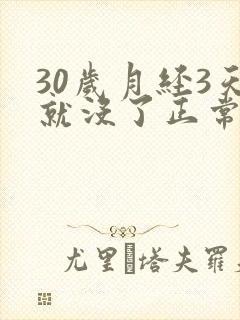 30歲月经3天
就沒了正常
尤里�塔夫羅